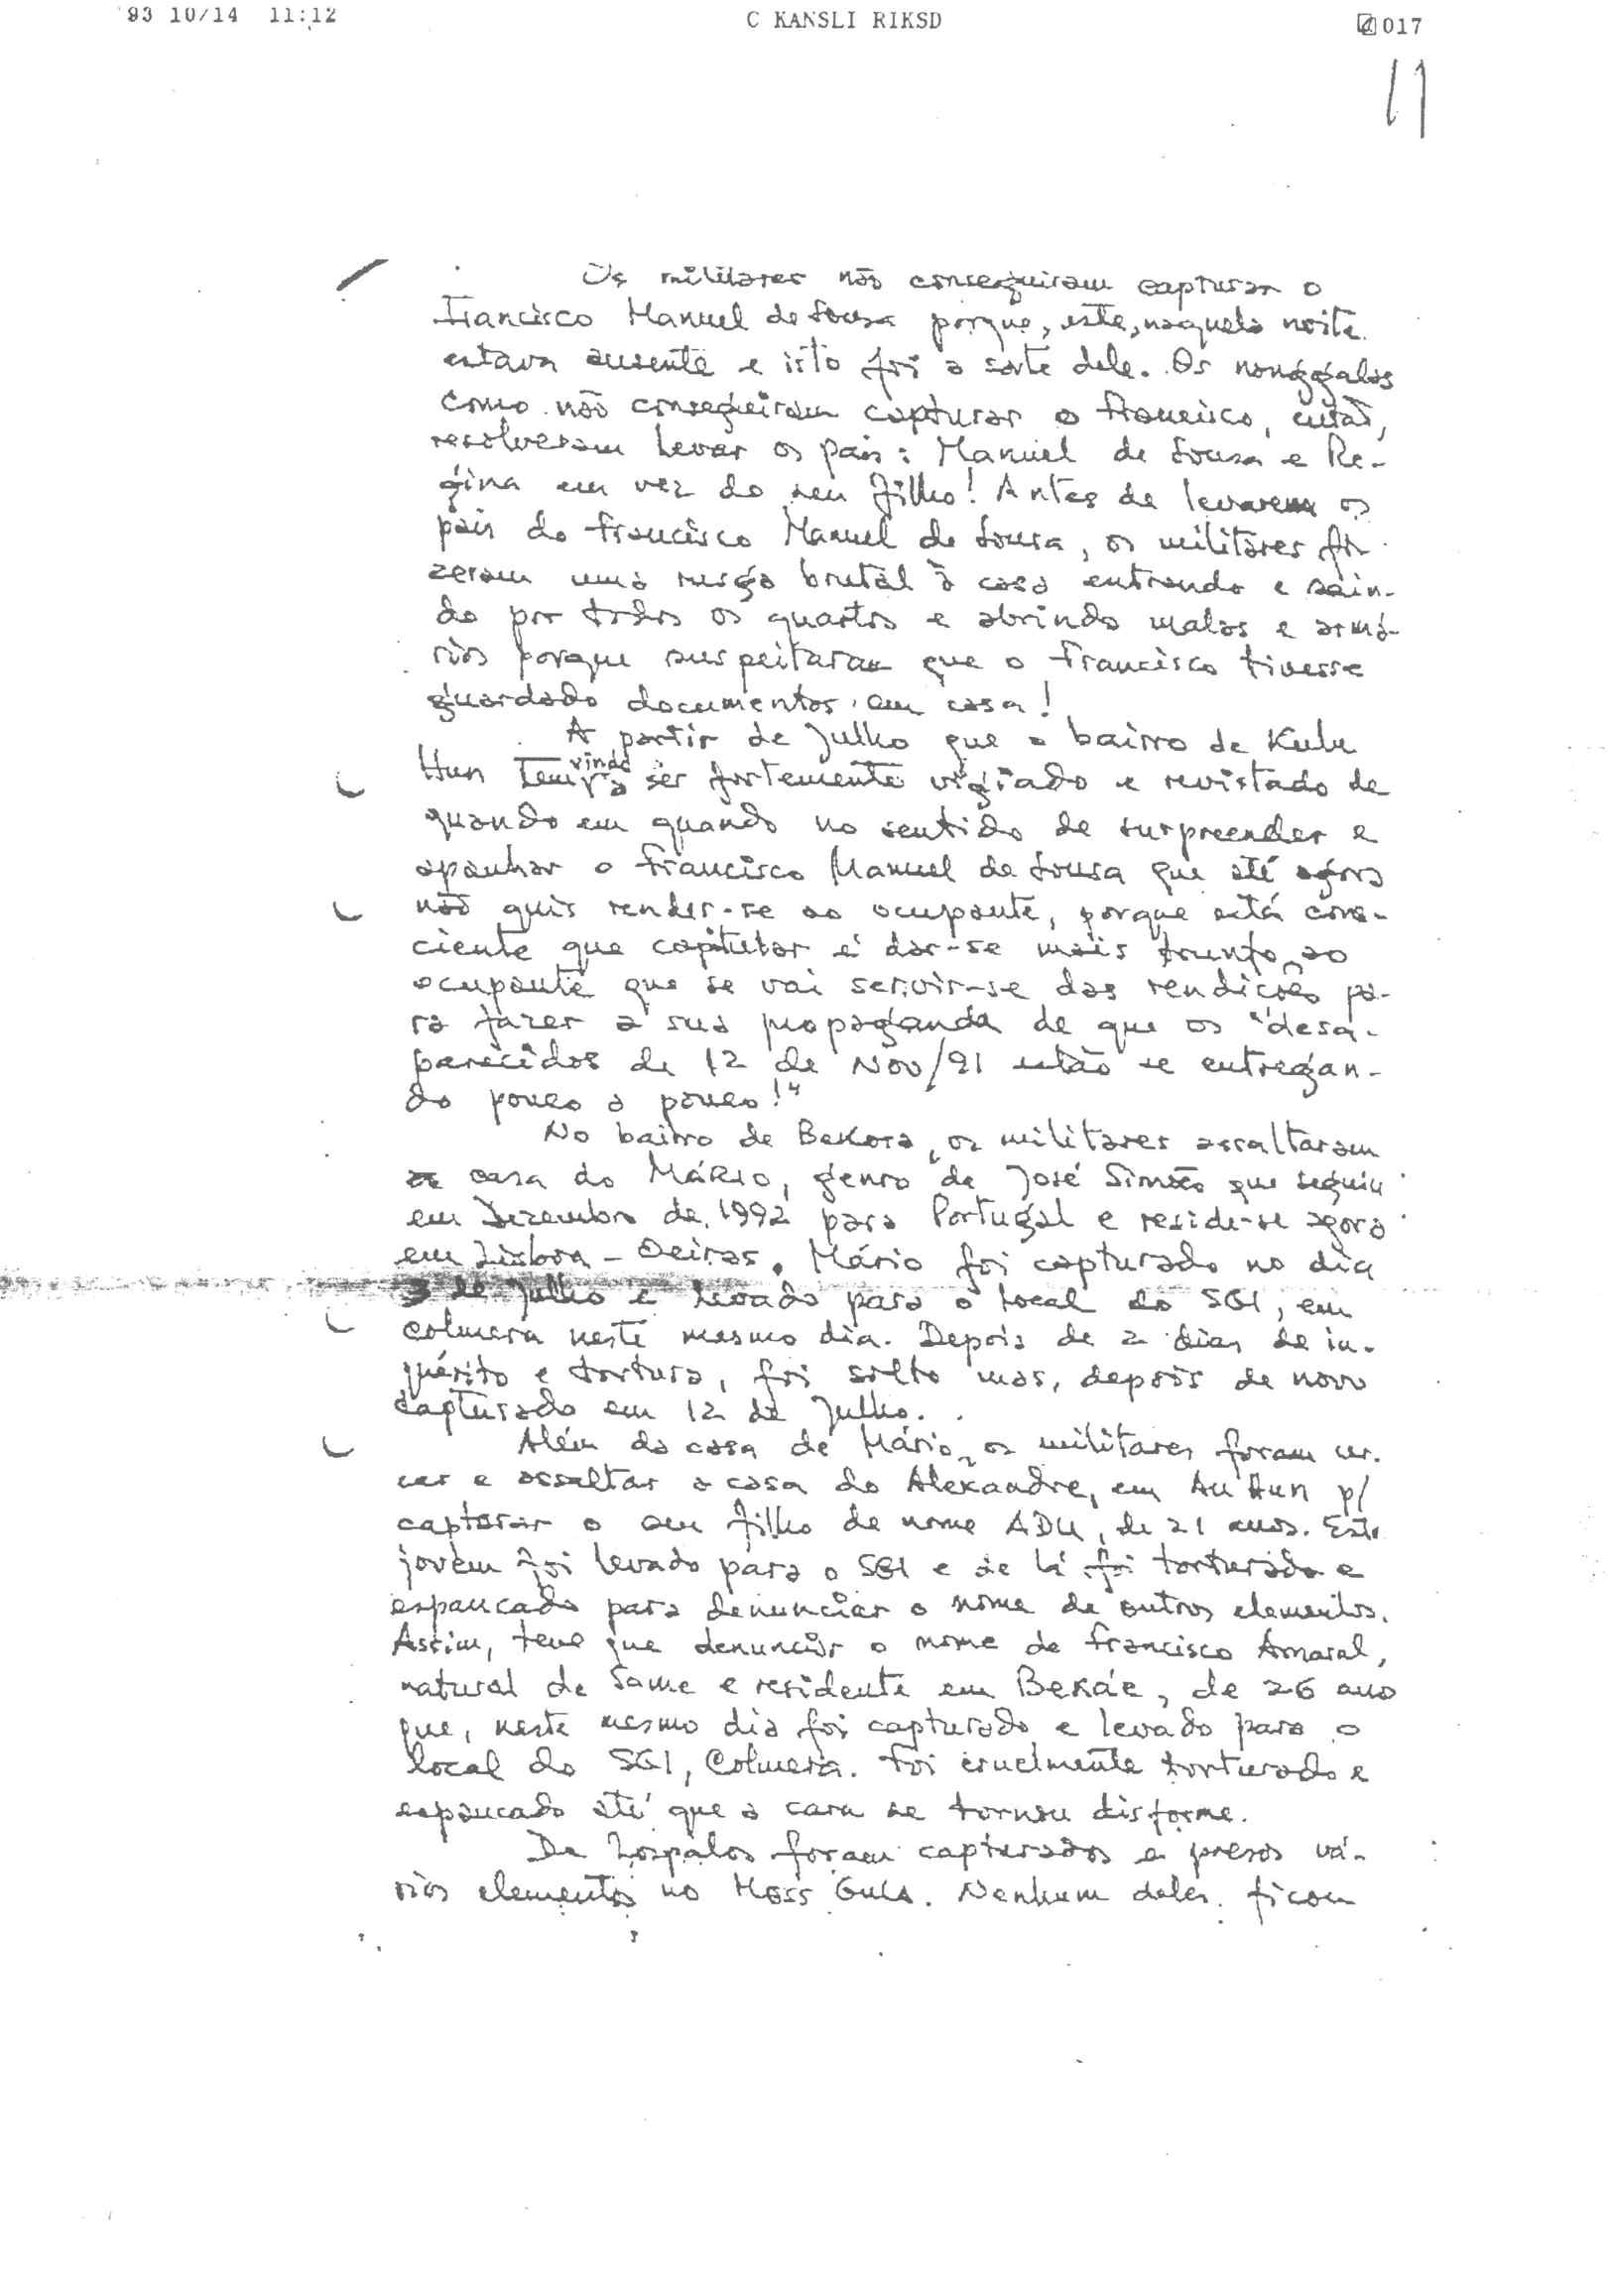 '93 10/14 11:12 C KANSLI RIKSD 017
Os militares não conseguiram capturar o
Francisco Manuel de Sousa porque, este, naquela noite
estava ausente e isto foi a sorte dele. Os nonggalas
como não conseguiram capturar o Francisco, então,
resolveram levar os pais: Manuel de Sousa e Re-
gina em vez do seu filho! Antes de levarem os
pais do Francisco Manuel de Sousa, os militares fi-
zeram uma rusga brutal à casa entrando e sain-
do por todos os quartos e abrindo malas e armá-
rios porque suspeitaram que o Francisco tivesse
guardado documentos em casa!
A partir de Julho que o bairro de Kulu
Hun tem vindo a ser fortemente vigiado e revistado de
quando em quando no sentido de surpreender e
apanhar o Francisco Manuel de Sousa que até agora
não quis render-se ao ocupante, porque está cons-
ciente que capitular é dar-se mais trunfo ao
ocupante que se vai servir-se das rendições pa-
ra fazer a sua propaganda de que os "desa-
parecidos de 12 de Nov/91 estão se entregan-
do pouco a pouco!"
No bairro de Bekora, os militares assaltaram
a casa do MÁRIO, genro de José Simões que seguiu
em Dezembro de 1992 para Portugal e reside-se agora
em Lisboa - Oeiras. Mário foi capturado no dia
3 de Julho e levado para o local do SGI, em
Colmera neste mesmo dia. Depois de 2 dias de in-
quérito e tortura, foi solto mas, depois de novo
capturado em 12 de Julho.
Além da casa de Mário, os militares foram cer-
car e assaltar a casa do Alexandre, em Au Hun p/
capturar o seu filho de nome ADU, de 21 anos. Este
jovem foi levado para o SGI e de lá foi torturado e
espancado para denunciar o nome de outros elementos.
Assim, teve que denunciar o nome de Francisco Amaral,
natural de Same e residente em Bekáe, de 26 ano
que, neste mesmo dia foi capturado e levado para o
local do SGI, Colmera. Foi cruelmente torturado e
espancado até que a cara se tornou disforme.
De Lospalos foram capturados e presos vá-
rios elementos no Mass Gula. Nenhum deles ficou